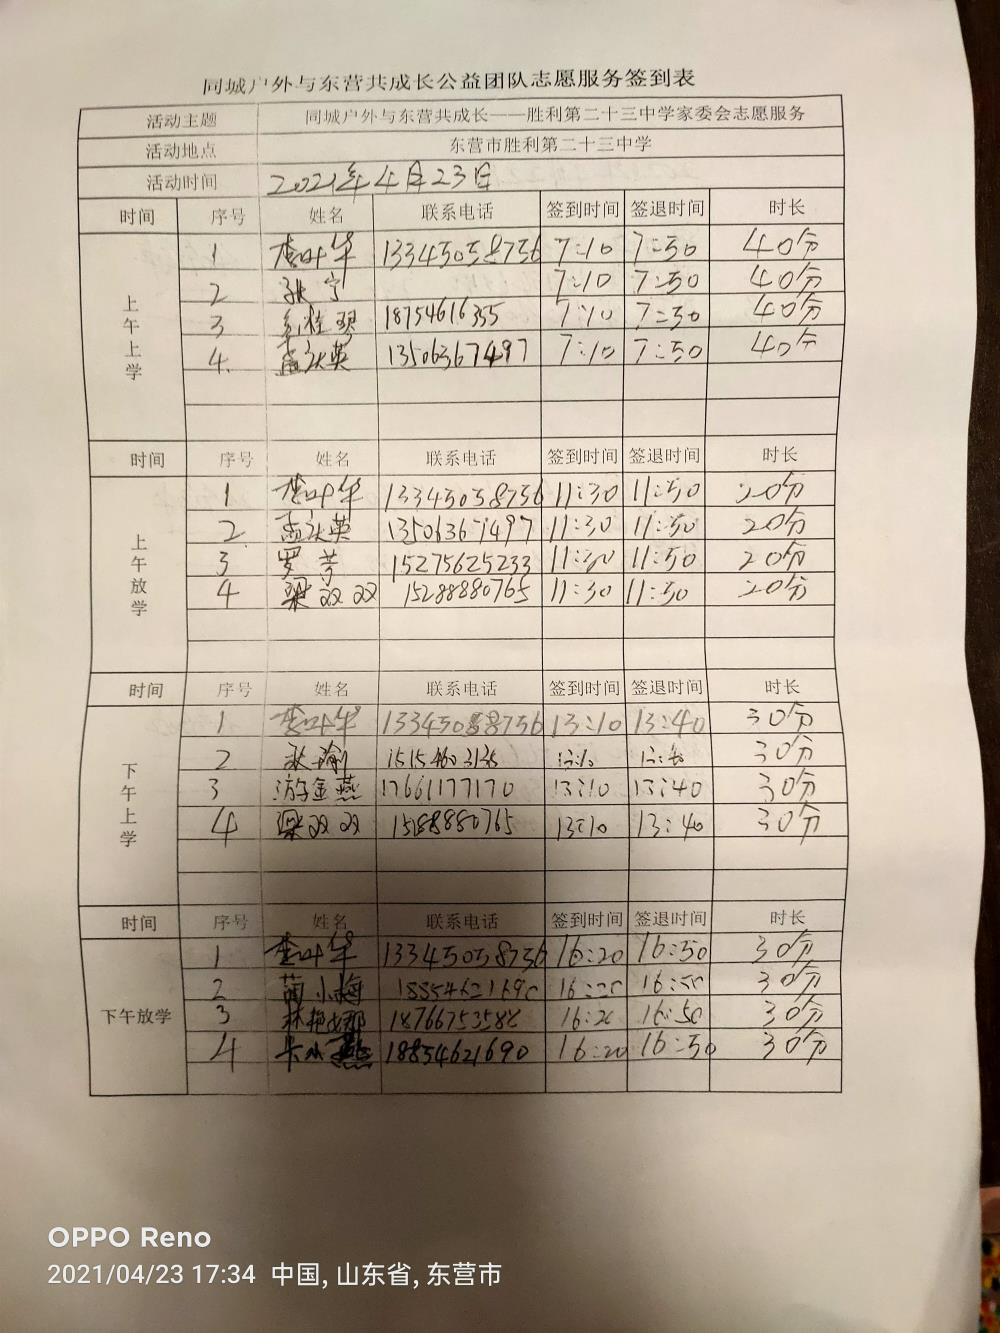 同城户外与东营共成长公益团队志愿服务签到表
活动主题 同城户外与东营共成长——胜利第二十三中学家委会志愿服务
活动地点 东营市胜利第二十三中学
活动时间 2021年4月23日
时间 序号 姓名 联系电话 签到时间 签退时间 时长
上午上学
1 李叶华 13345058756 7:10 7:50 40分
2 张宁 7:10 7:50 40分
3 18754616355 7:10 7:50 40分
4. 孟庆英 13506367497 7:10 7:50 40分
时间 序号 姓名 联系电话 签到时间 签退时间 时长
上午放学
1 李叶华 13345058756 11:30 11:50 20分
2. 孟庆英 13506367497 11:30 11:50 20分
3 罗芳 15275625233 11:30 11:50 20分
4 梁双双 15288880765 11:30 11:50 20分
时间 序号 姓名 联系电话 签到时间 签退时间 时长
下午上学
1 李叶华 13345058756 13:10 13:40 30分
2 13:10 13:40 30分
3 游金燕 17661177170 13:10 13:40 30分
4 梁双双 13:10 13:40 30分
时间 序号 姓名 联系电话 签到时间 签退时间 时长
下午放学
1 李叶华 13345058756 16:20 16:50 30分
2 小梅 16:20 16:50 30分
3 林艳娜 16:20 16:50 30分
4 卡小燕 18854621690 16:20 16:50 30分
OPPO Reno
2021/04/23 17:34 中国, 山东省, 东营市